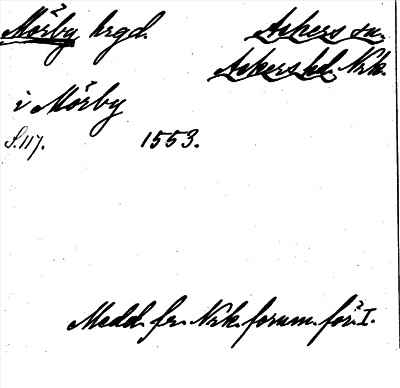 Mörby hrgd. Askers sn.
Askers hd. Nrk.
i Mörby
S. 117. 1553.
Medd. fr. Nrk. fornm. för. I.